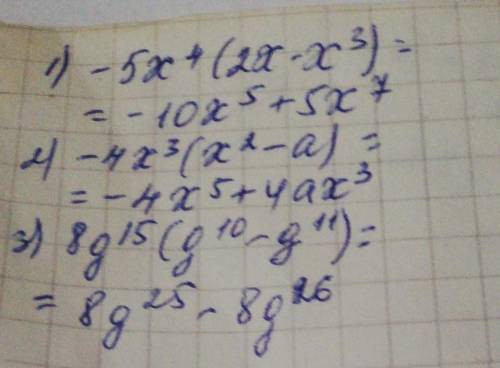 1) -5x⁴(2x-x³)=
= -10x⁵+5x⁷
2) -4x³(x²-a)=
= -4x⁵+4ax³
3) 8g¹⁵(g¹⁰-g¹¹)=
= 8g²⁵-8g²⁶